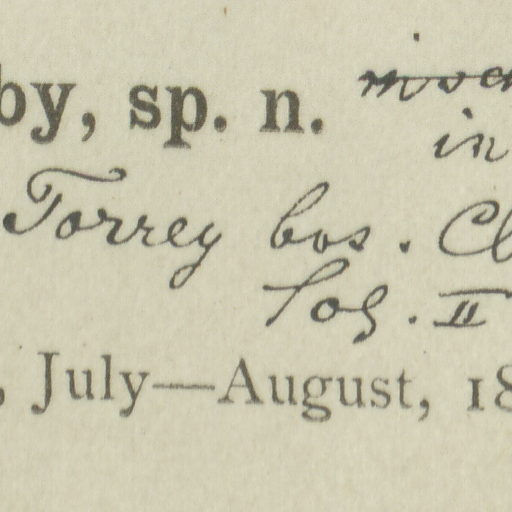 by, sp. n.
in
Torrey bos. Cl
Log. II
, July—August, 18